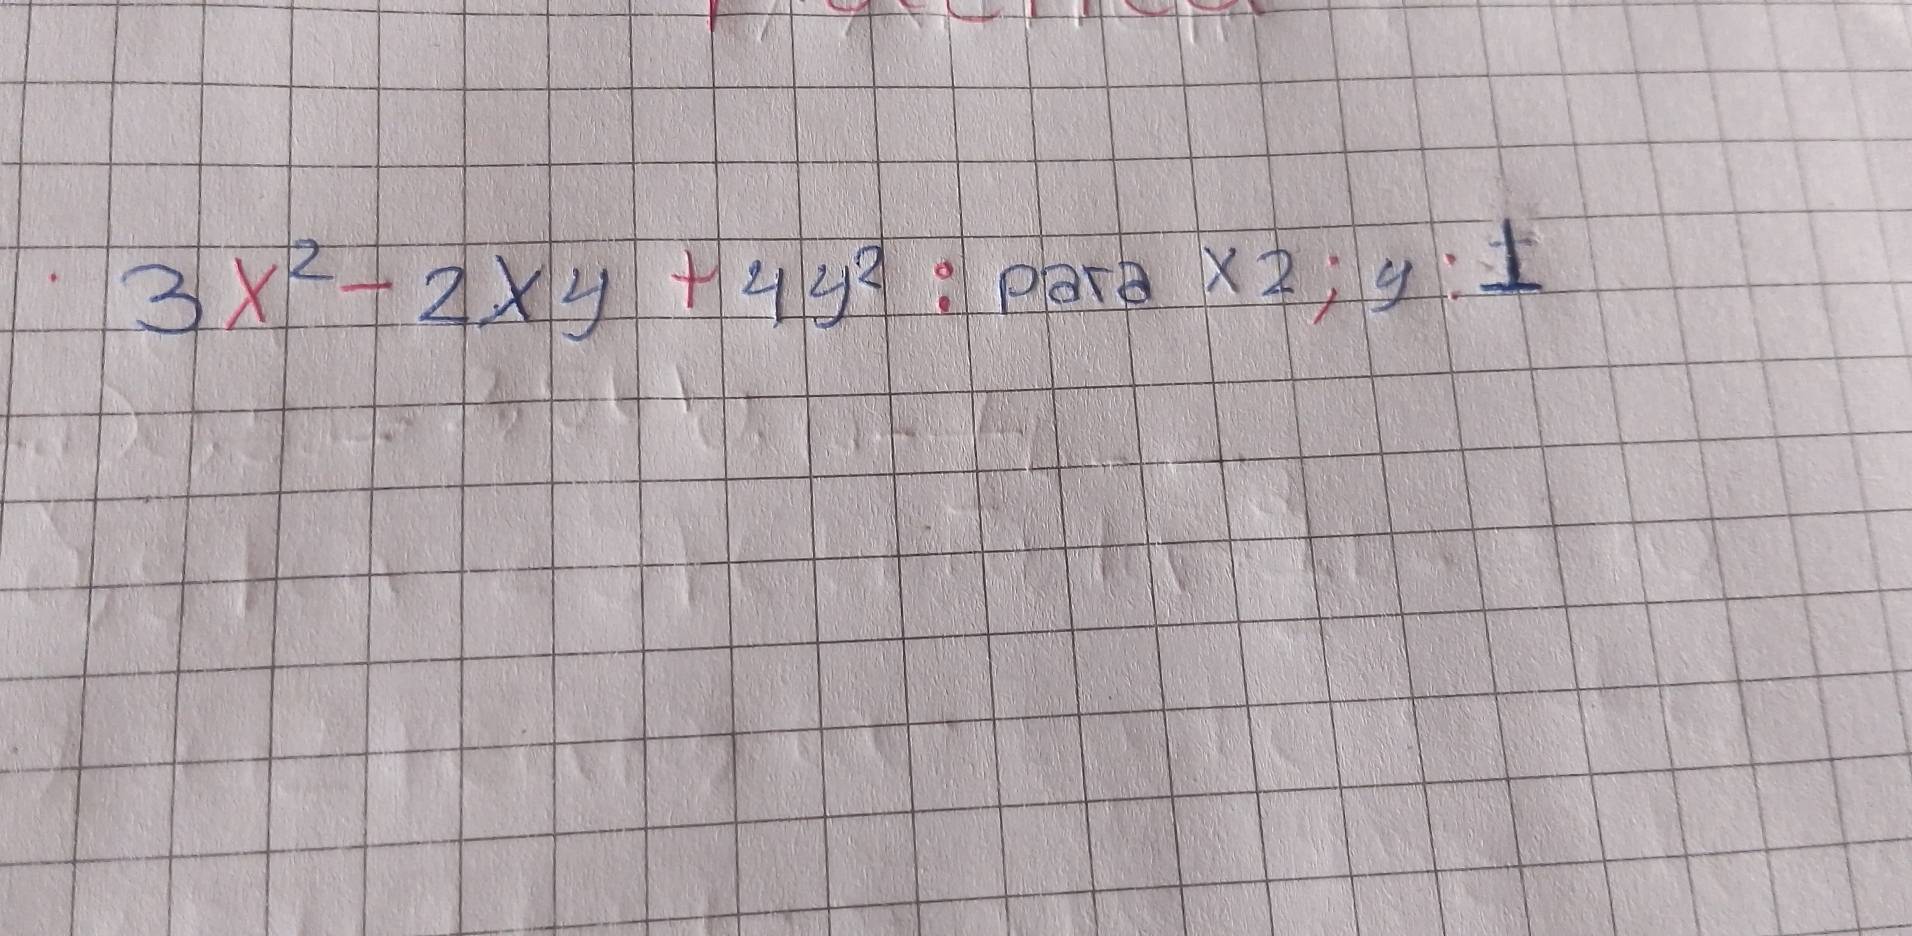 · 3x² - 2xy + 4y² : para x2; y : 1